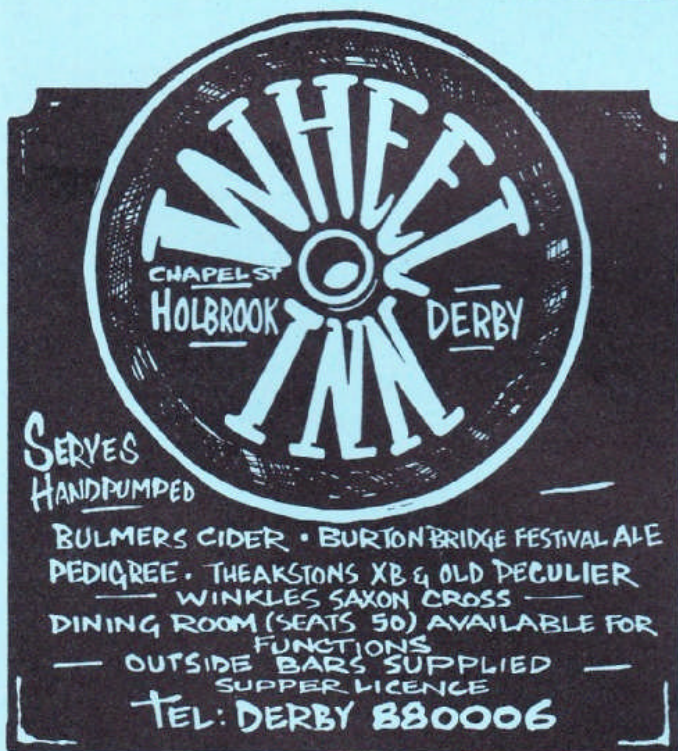 WHEEL
INN
CHAPEL ST
HOLBROOK
DERBY
SERVES
HANDPUMPED
BULMERS CIDER · BURTON BRIDGE FESTIVAL ALE
PEDIGREE · THEAKSTONS XB & OLD PECULIER
WINKLES SAXON CROSS
DINING ROOM (SEATS 50) AVAILABLE FOR
FUNCTIONS
OUTSIDE BARS SUPPLIED
SUPPER LICENCE
TEL: DERBY 880006